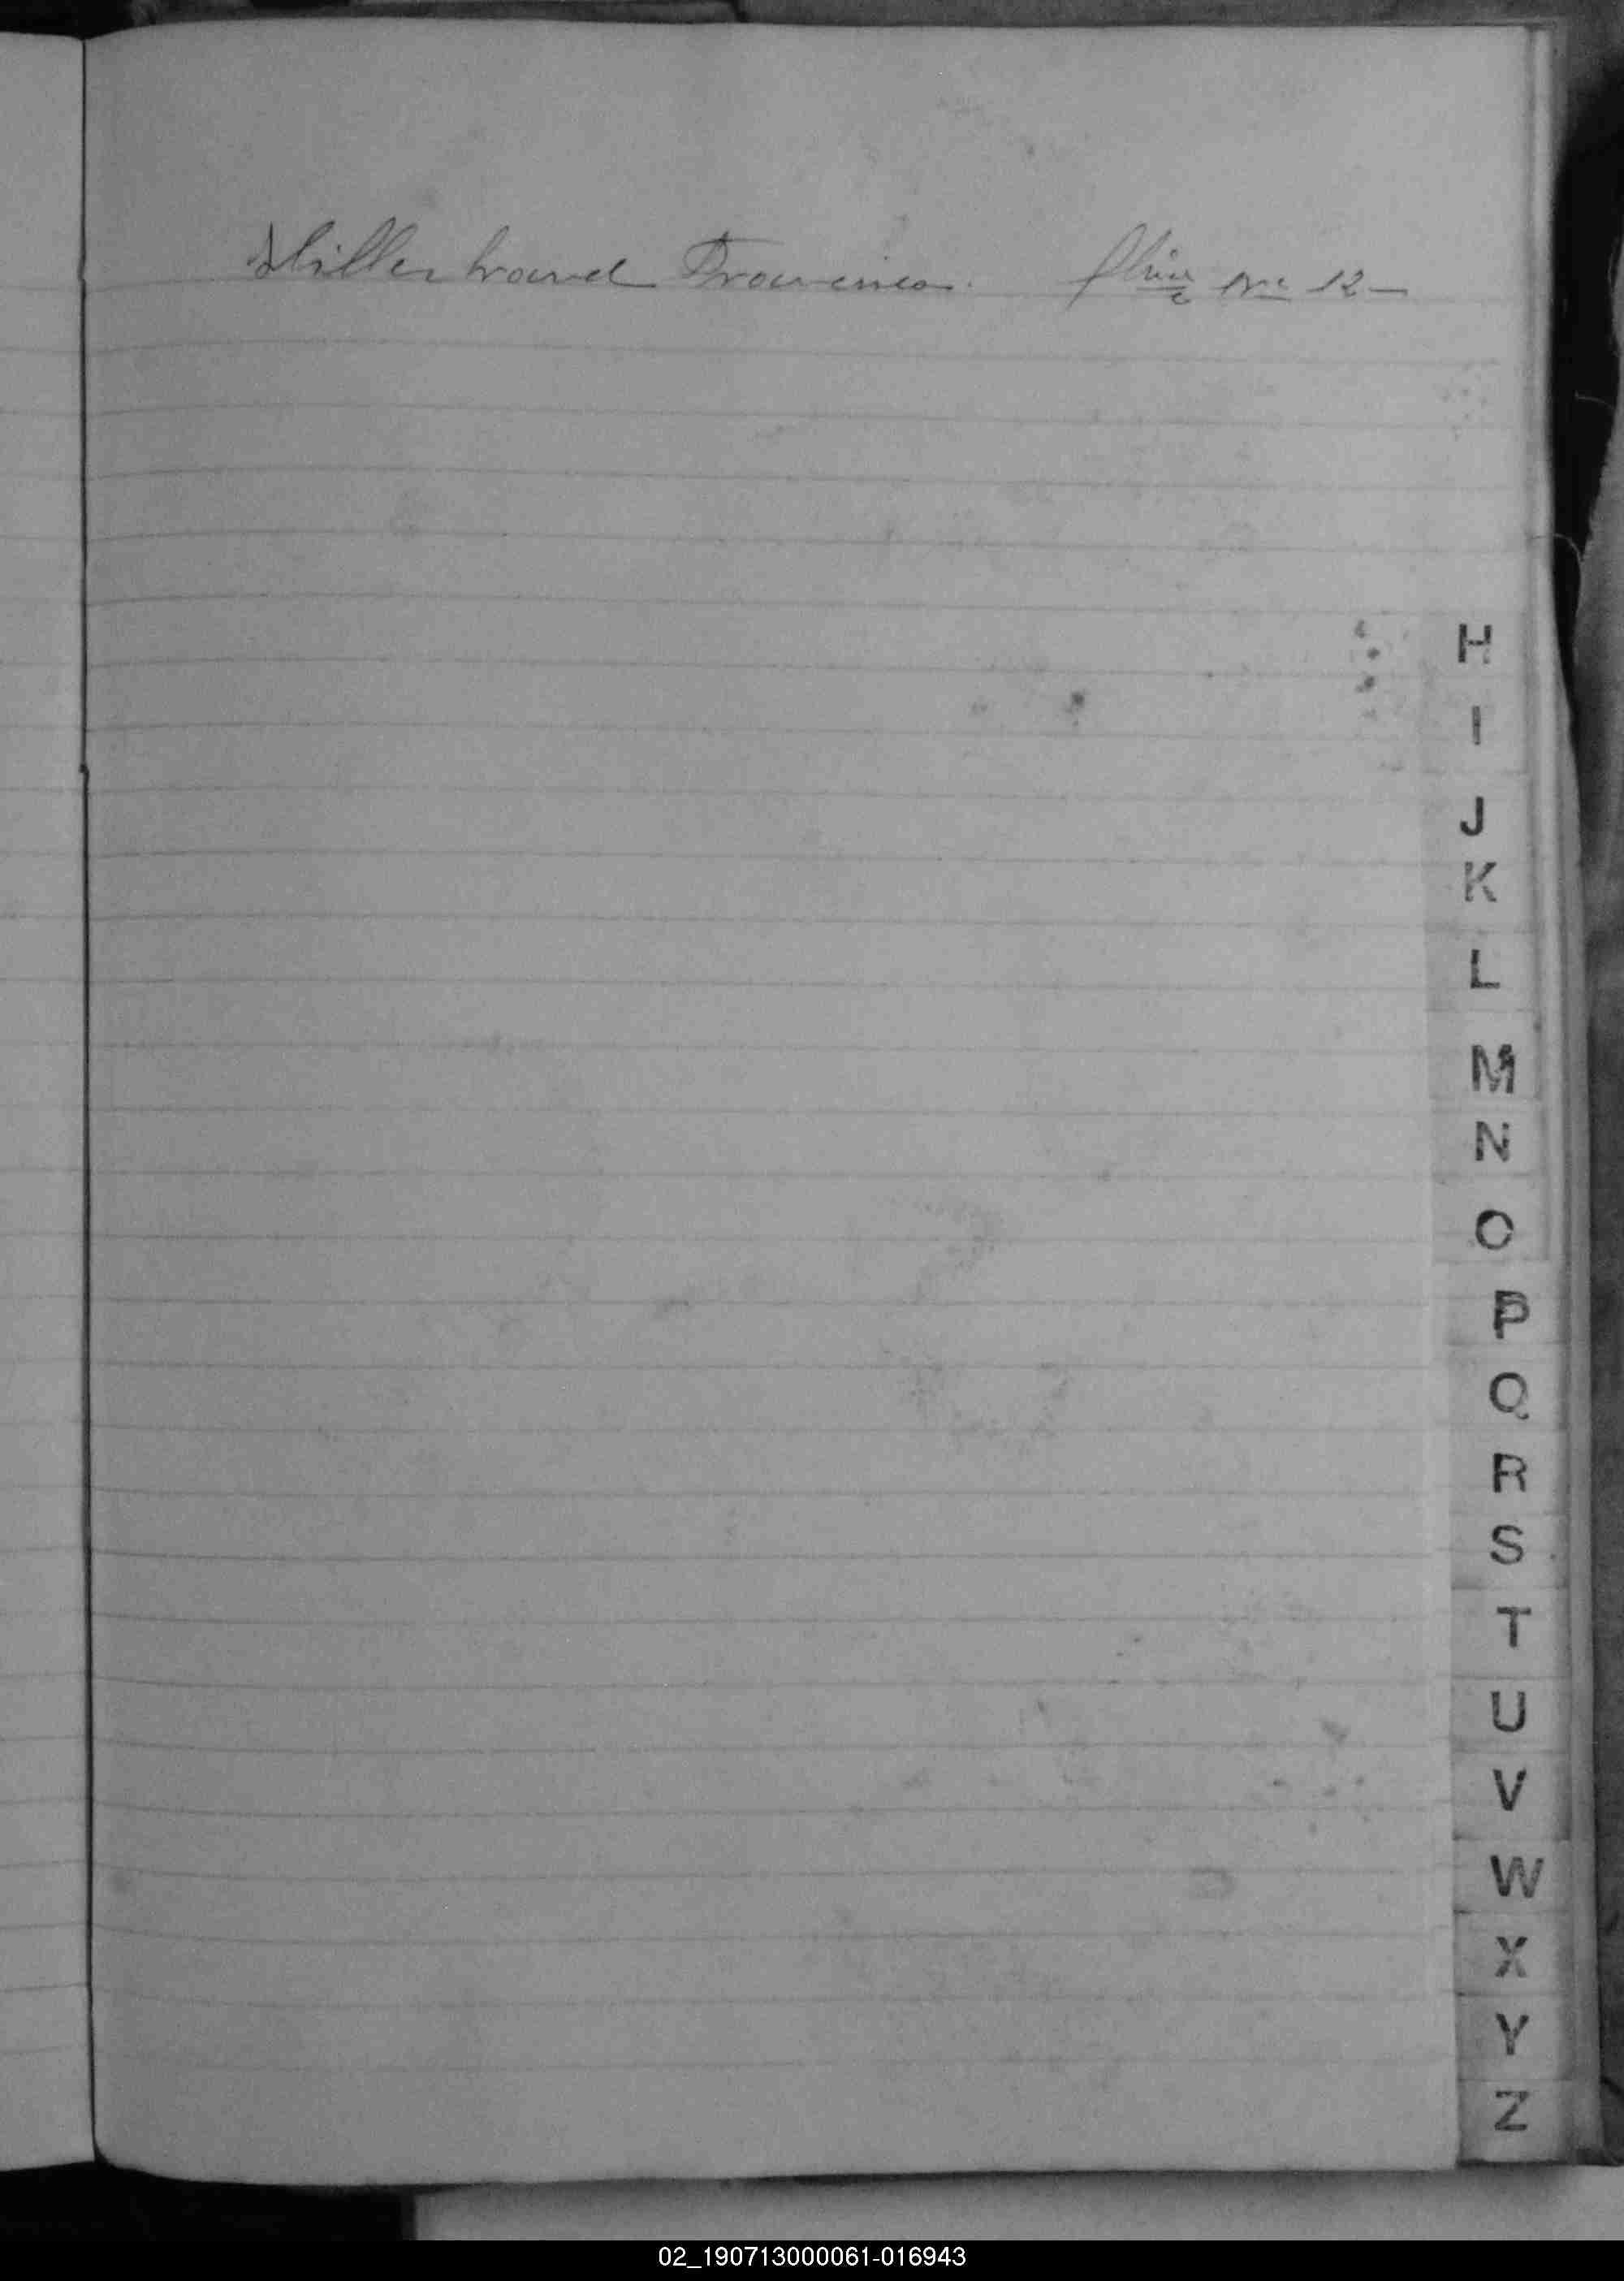 Hillenbrand Francisca. No 12 —
H
I
J
K
L
M
N
O
P
Q
R
S
T
U
V
W
X
Y
Z
02_190713000061-016943